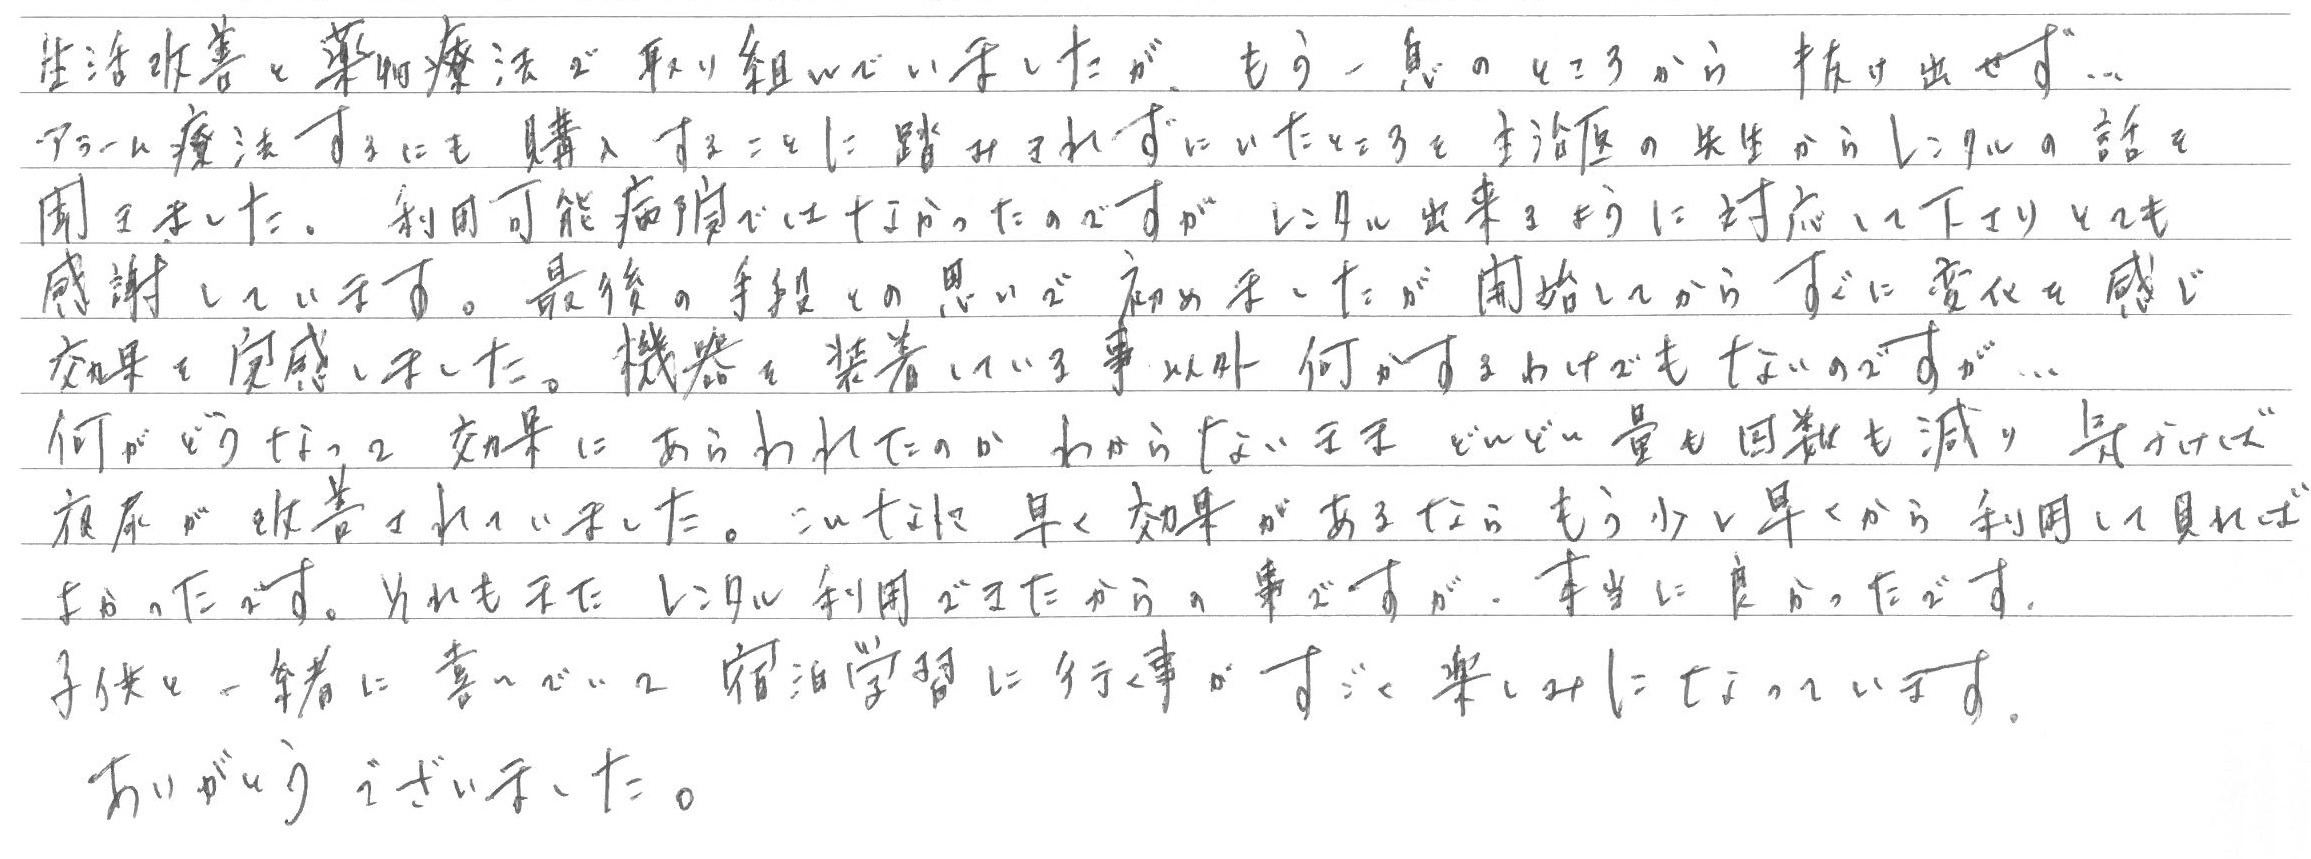 生活改善と薬物療法で取り組んでいましたが、もう一息のところから抜け出せず…
アラーム療法するにも購入することに踏みきれずにいたところを主治医の先生からレンタルの話を
聞きました。利用可能病院ではなかったのですがレンタル出来るように対応して下さりとても
感謝しています。最後の手段との思いで初めましたが開始してからすぐに変化を感じ
効果を実感しました。機器を装着している事以外何かするわけでもないのですが…
何がどうなって効果にあらわれたのかわからないままどんどん量も回数も減り気づけば
夜尿が改善されていました。こんなに早く効果があるならもう少し早くから利用して見れば
よかったです。それもまたレンタル利用できたからの事ですが、本当に良かったです。
子供と一緒に喜んでいて宿泊学習に行く事がすごく楽しみになっています。
ありがとうございました。